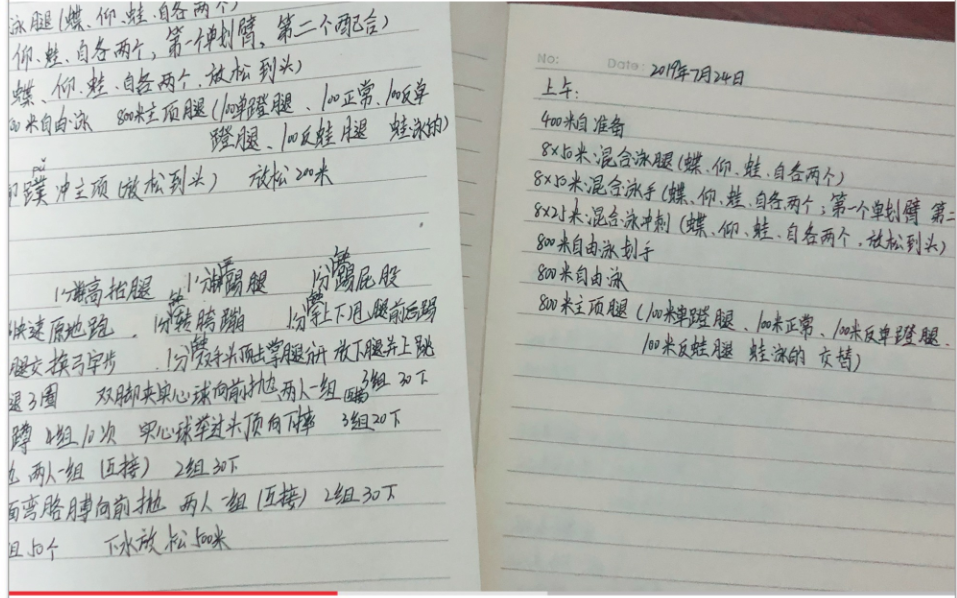 泳腿(蝶、仰、蛙、自各两个)
仰、蛙、自各两个,第一个单划臂、第二个配合)
蝶、仰、蛙、自各两个、放松到头)
米自由泳 800米主项腿(100单蹬腿、100正常、100反单
蹬腿、100反蛙腿 蛙泳的)
pú
蹼 冲主项(放松到头) 放松200米
1分钟高抬腿 1分钟踢腿 1分钟踢屁股
快速原地跑 1分钟转胯蹦 1分钟上下甩腿前后踢
腿交换弓字步 1分钟双手头顶击掌腿分开 放下腿并上跳
退3圈 双脚夹实心球向前抛两人一组 3组 30下
蹲 4组10次 实心球举过头顶向下摔 3组20下
两人一组(互接) 2组30下
面弯胳膊向前抛 两人一组(互接) 2组30下
组50个 下水放松500米
No: Date: 2019年7月24日
上午:
400米自准备
8×50米混合泳腿(蝶、仰、蛙、自各两个)
8×50米混合泳手(蝶、仰、蛙、自各两个;第一个单划臂 第二
8×25米混合泳冲刺(蝶、仰、蛙、自各两个,放松到头)
800米自由泳划手
800米自由泳
800米主项腿(100米单蹬腿、100米正常、100米反单蹬腿、
100米反蛙腿 蛙泳的 交替)